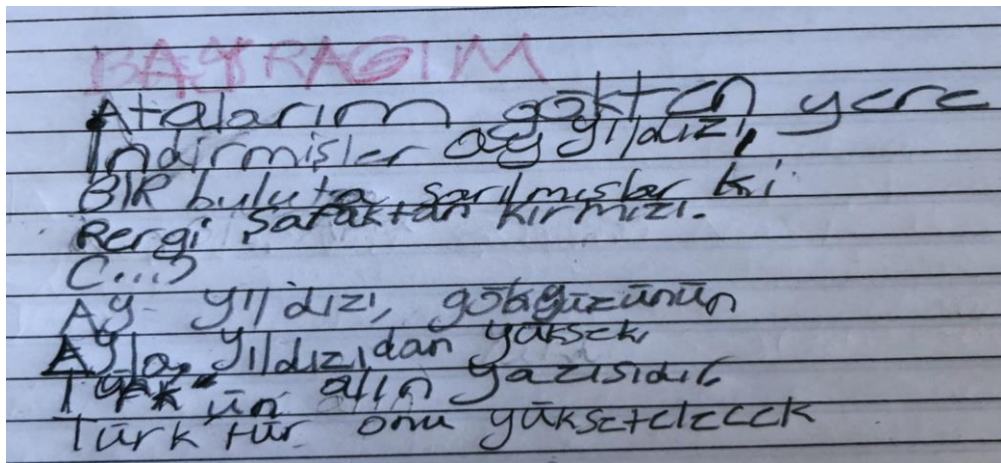 BAYRAĞIM
Atalarım gökten yere
İndirmişler ay yıldızı,
BİR buluta sarılmışlar ki
Rergi şafaktan kırmızı.
(...)
Ay yıldızı, gökyüzünün
Ayla, yıldızıdan yüksek,
Türk'ün alın yazısıdır
Türk'tür onu